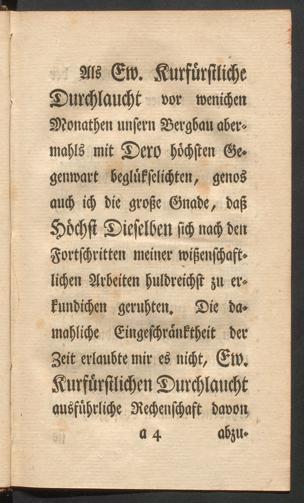 Als Ew. Kurfürstliche
Durchlaucht vor wenichen
Monathen unsern Bergbau aber-
mahls mit Dero höchsten Ge-
genwart beglükselichten, genos
auch ich die große Gnade, daß
Höchst Dieselben sich nach den
Fortschritten meiner wißenschaft-
lichen Arbeiten huldreichst zu er-
kundichen geruhten. Die da-
mahliche Eingeschränktheit der
Zeit erlaubte mir es nicht, Ew.
Kurfürstlichen Durchlaucht
ausführliche Rechenschaft davon
a 4 abzu-